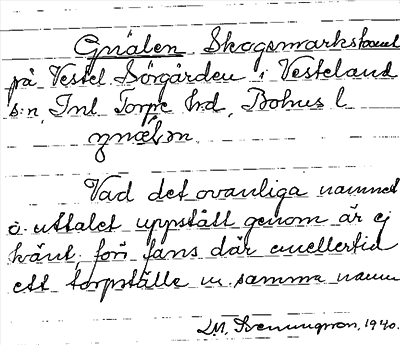 Gnälen Skogsmarkstomt
på Vestel Sörgården i Vesteland
s:n, Inl Torpe hd, Bohus l
Vad det ovanliga namnet
o. uttalet uppstått genom är ej
känt, förr fans där emellertid
ett torpställe m samma namn
L.M. Svenungson, 1940.